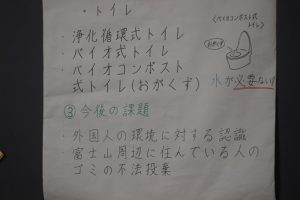 ・トイレ
・浄化循環式トイレ
・バイオ式トイレ
・バイオコンポスト
式トイレ(おがくず)
〈バイオコンポスト式
トイレ〉
おがくず
水が必要ない!
③今後の課題
・外国人の環境に対する認識
・富士山周辺に住んでいる人の
ゴミの不法投棄